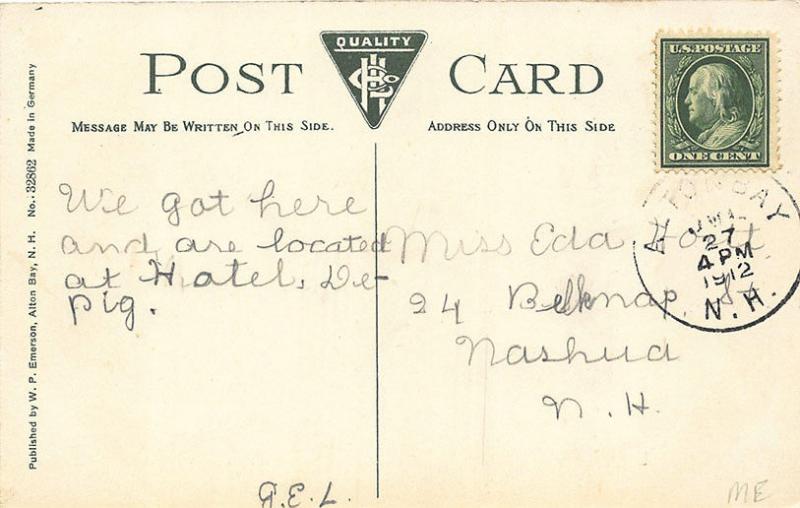 QUALITY
POST CARD
MESSAGE MAY BE WRITTEN ON THIS SIDE.
ADDRESS ONLY ON THIS SIDE
U.S. POSTAGE
ONE CENT
ALTON BAY
27
4 PM
1912
N.H.
We got here
and are located
at Hotel, De-
pig.
Miss Eda Hoitt
24 Belknap St
Nashua
N. H.
Published by W. P. Emerson, Alton Bay, N. H. No.: 32862 Made in Germany
ME